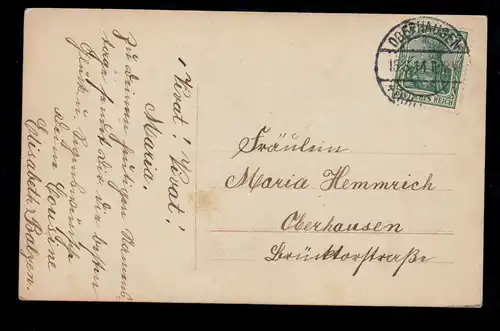 ! Vivat! Vivat!
Maria.
Zu deinem heutigen Namens-
tage sendet dir die besten
Glück u. Segenswünsche
deine Cousine
Elisabeth Balzen.
OBERHAUSEN
REICH
Fräulein
Maria Hemmrich
Oberhausen
Brücktorstraße